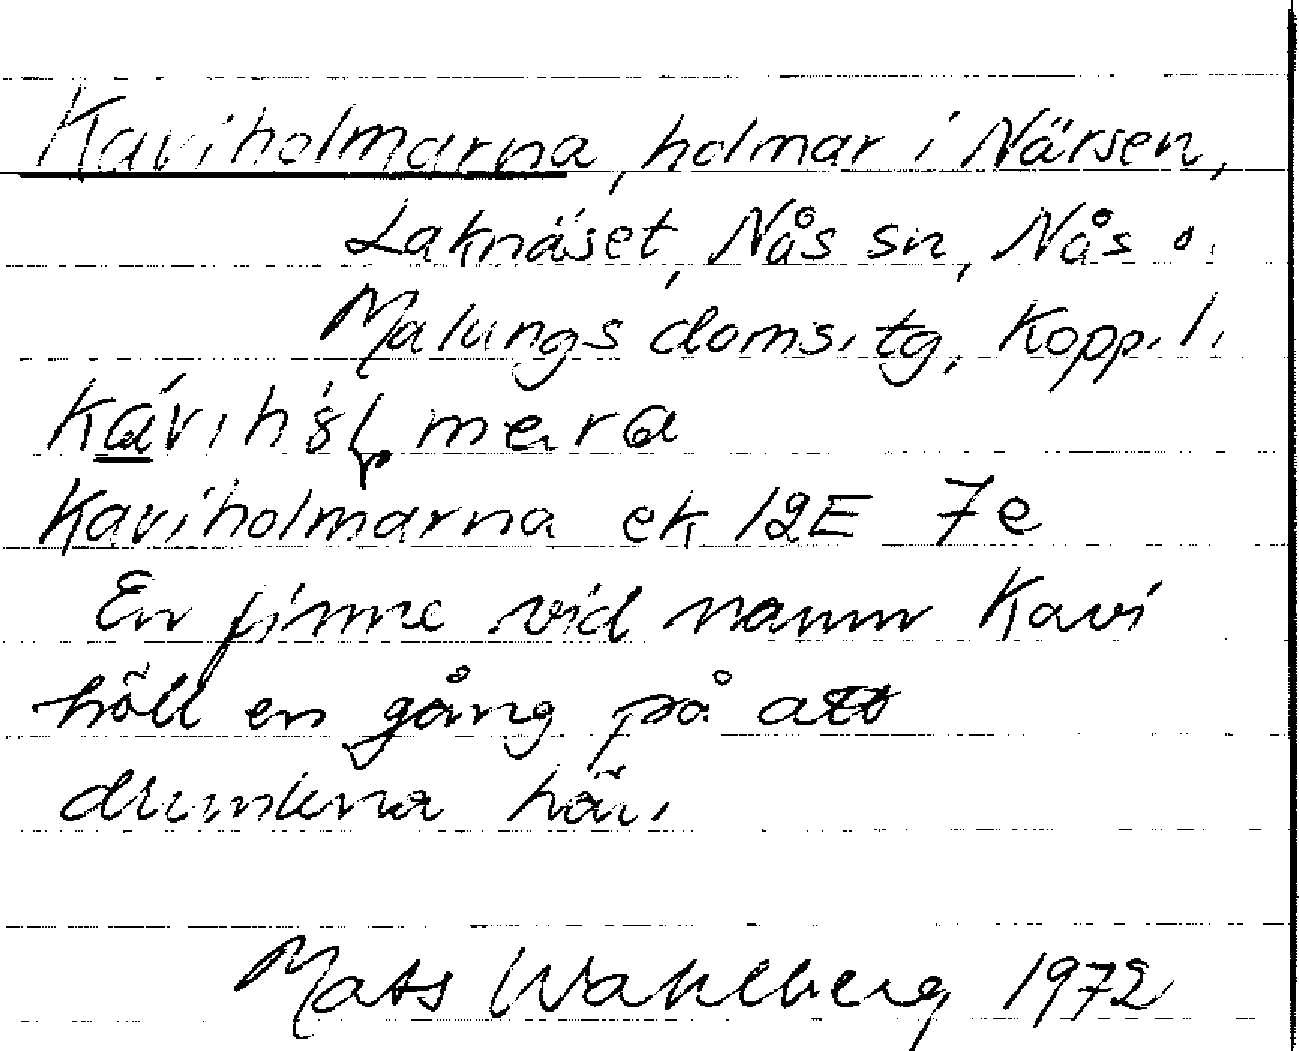 Kaviholmarna, holmar i Närsen,
Laknäset, Nås sn, Nås o.
Malungs doms. tg, Kopp. l.
Kaviholmarna ek 12E 7e
En finne vid namn Kavi
höll en gång på att
drunkna här.
Mats Wahlberg 1972